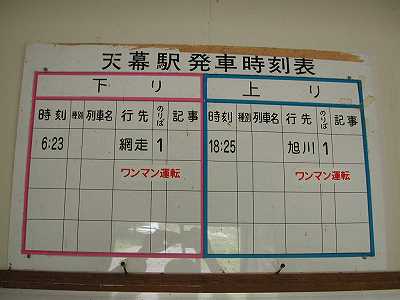 天幕駅発車時刻表
下り
時刻 種別 列車名 行先 のりば 記事
6:23 網走 1
ワンマン運転
上り
時刻 種別 列車名 行先 のりば 記事
18:25 旭川 1
ワンマン運転